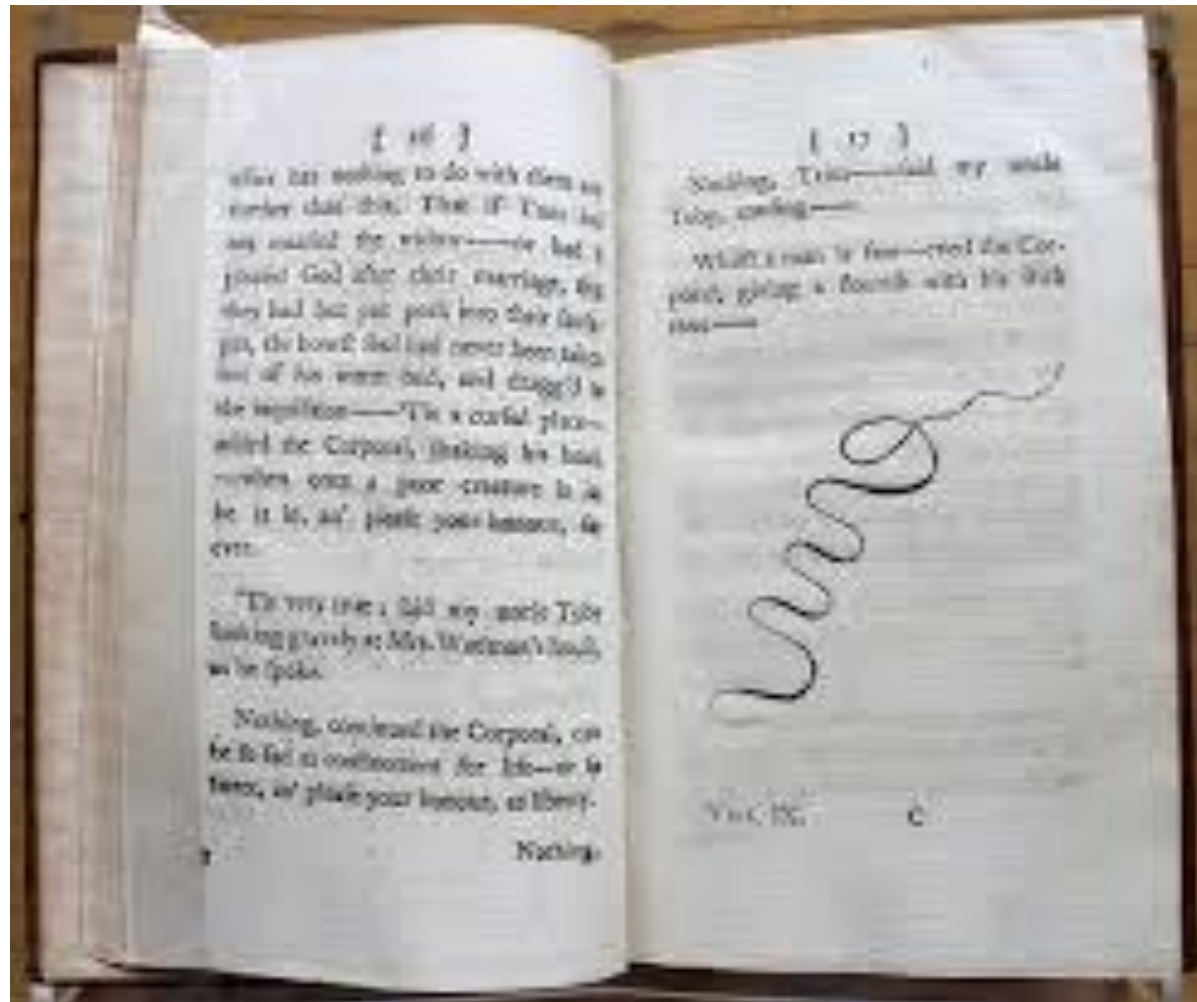 [ 16 ]
nothing to do with them
than this, That if Tom had
not married the widow——or had i
pleased God after their marriage, tha
they had but put pork into their sausa-
ges, the honest soul had never been taken
out of his warm bed, and dragg'd to
the inquisition——'Tis a cursed place—
added the Corporal, shaking his head,
—when once a poor creature is in
he is in, an' please your honour, for
ever.
'Tis very true; said my uncle Toby
looking gravely at Mrs. Wadman's house,
as he spoke.
Nothing, continued the Corporal, can
be so sad as confinement for life—or so
sweet, an' please your honour, as liberty.
Nothing,
[ 17 ]
Nothing, Trim——said my uncle
Toby, musing——
Whilst a man is free—cried the Cor-
poral, giving a flourish with his stick
thus——
VOL. IX. C